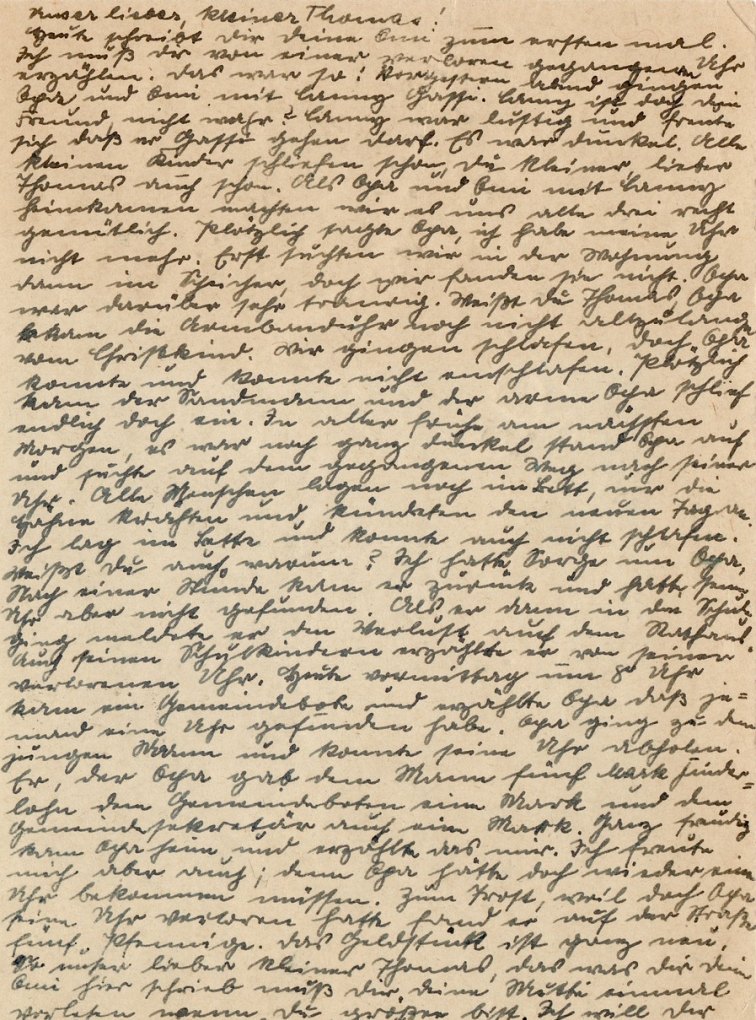 Unser lieber, kleiner Thomas!
Heute schreibt dir deine Omi zum ersten mal.
Ich muß dir von einer verloren gegangenen Uhr
erzählen. Das war so: Vorgestern abend gingen
Opa und Omi mit Lanny Gassi. Lanny ist doch dein
Freund, nicht wahr? Lanny war lustig und freute
sich daß er Gassi gehen darf. Es war dunkel. Alle
kleinen Kinder schliefen schon, du kleiner, lieber
Thomas auch schon. Als Opa und Omi mit Lanny
heimkamen machten wir es uns alle drei recht
gemütlich. Plötzlich sagte Opa, ich habe meine Uhr
nicht mehr. Erst suchten wir in der Wohnung
dann im Speicher, doch wir fanden sie nicht. Opa
war darüber sehr traurig. Weißt du Thomas, Opa
bekam die Armbanduhr noch nicht allzulange
vom Christkind. Wir gingen schlafen, doch Opa
konnte und konnte nicht einschlafen. Plötzlich
kam der Sandmann und der arme Opa schlief
endlich doch ein. In aller frühe am nächsten
Morgen, es war noch ganz dunkel stand Opa auf
und suchte auf dem gegangenen Weg nach seiner
Uhr. Alle Menschen lagen noch im Bett, nur die
Hähne krähten und kündeten den neuen Tag an.
Ich lag im Bette und konnte auch nicht schlafen.
Weißt du auch warum? Ich hatte Sorge um Opa,
Nach einer Stunde kam er zurück und hatte seine
Uhr aber nicht gefunden. Als er dann in die Schule
ging meldete er den Verlust auch dem Rathaus.
Auch seinen Schulkindern erzählte er von seiner
verlorenen Uhr. Heute vormittag um 8° Uhr
kam ein Gemeindebote und erzählte Opa daß je=
mand eine Uhr gefunden habe. Opa ging zu dem
jungen Mann und konnte seine Uhr abholen.
Er, der Opa gab dem Mann fünf Mark Finder=
lohn dem Gemeindeboten eine Mark und dem
Gemeindesekretär auch eine Mark. Ganz freudig
kam Opa heim und erzählte das mir. Ich freute
mich aber auch; denn Opa hätte doch wieder eine
Uhr bekommen müssen. Zum Trost, weil doch Opa
seine Uhr verloren hatte fand er auf der Straße
fünf Pfennige. Das Geldstück ist ganz neu,
So unser lieber kleiner Thomas, das was dir dein
Omi hier schrieb muß dir deine Mutti einmal
vorlesen wenn du größer bist. Ich will der